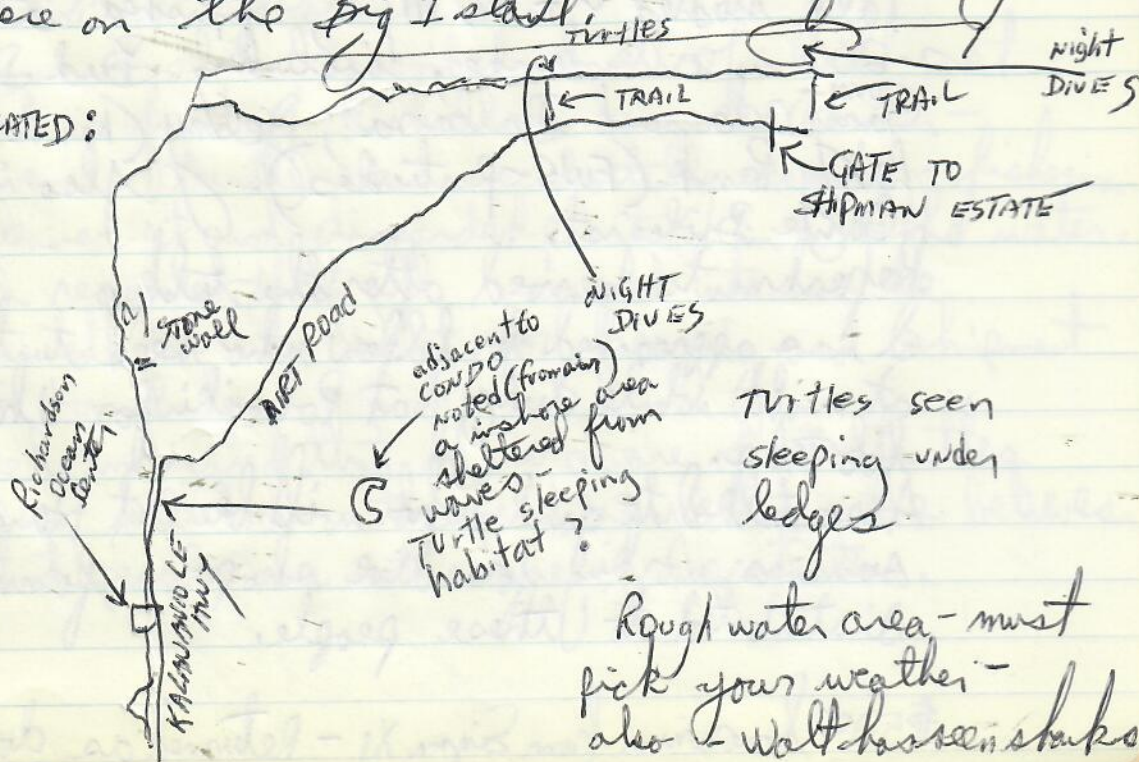 ere on the Big Island.
TURTLES
Night
DIVES
ATED:
TRAIL
TRAIL
GATE TO
SHIPMAN ESTATE
Stone
wall
DIRT ROAD
NIGHT
DIVES
adjacent to
CONDO
noted (from air)
a inshore area
sheltered from
waves -
Turtle sleeping
habitat?
Turtles seen
sleeping under
ledges
Richardson
Ocean
Center
KALANIANOLE
HWY
Rough water area - must
pick your weather -
also - Walt has seen sharks